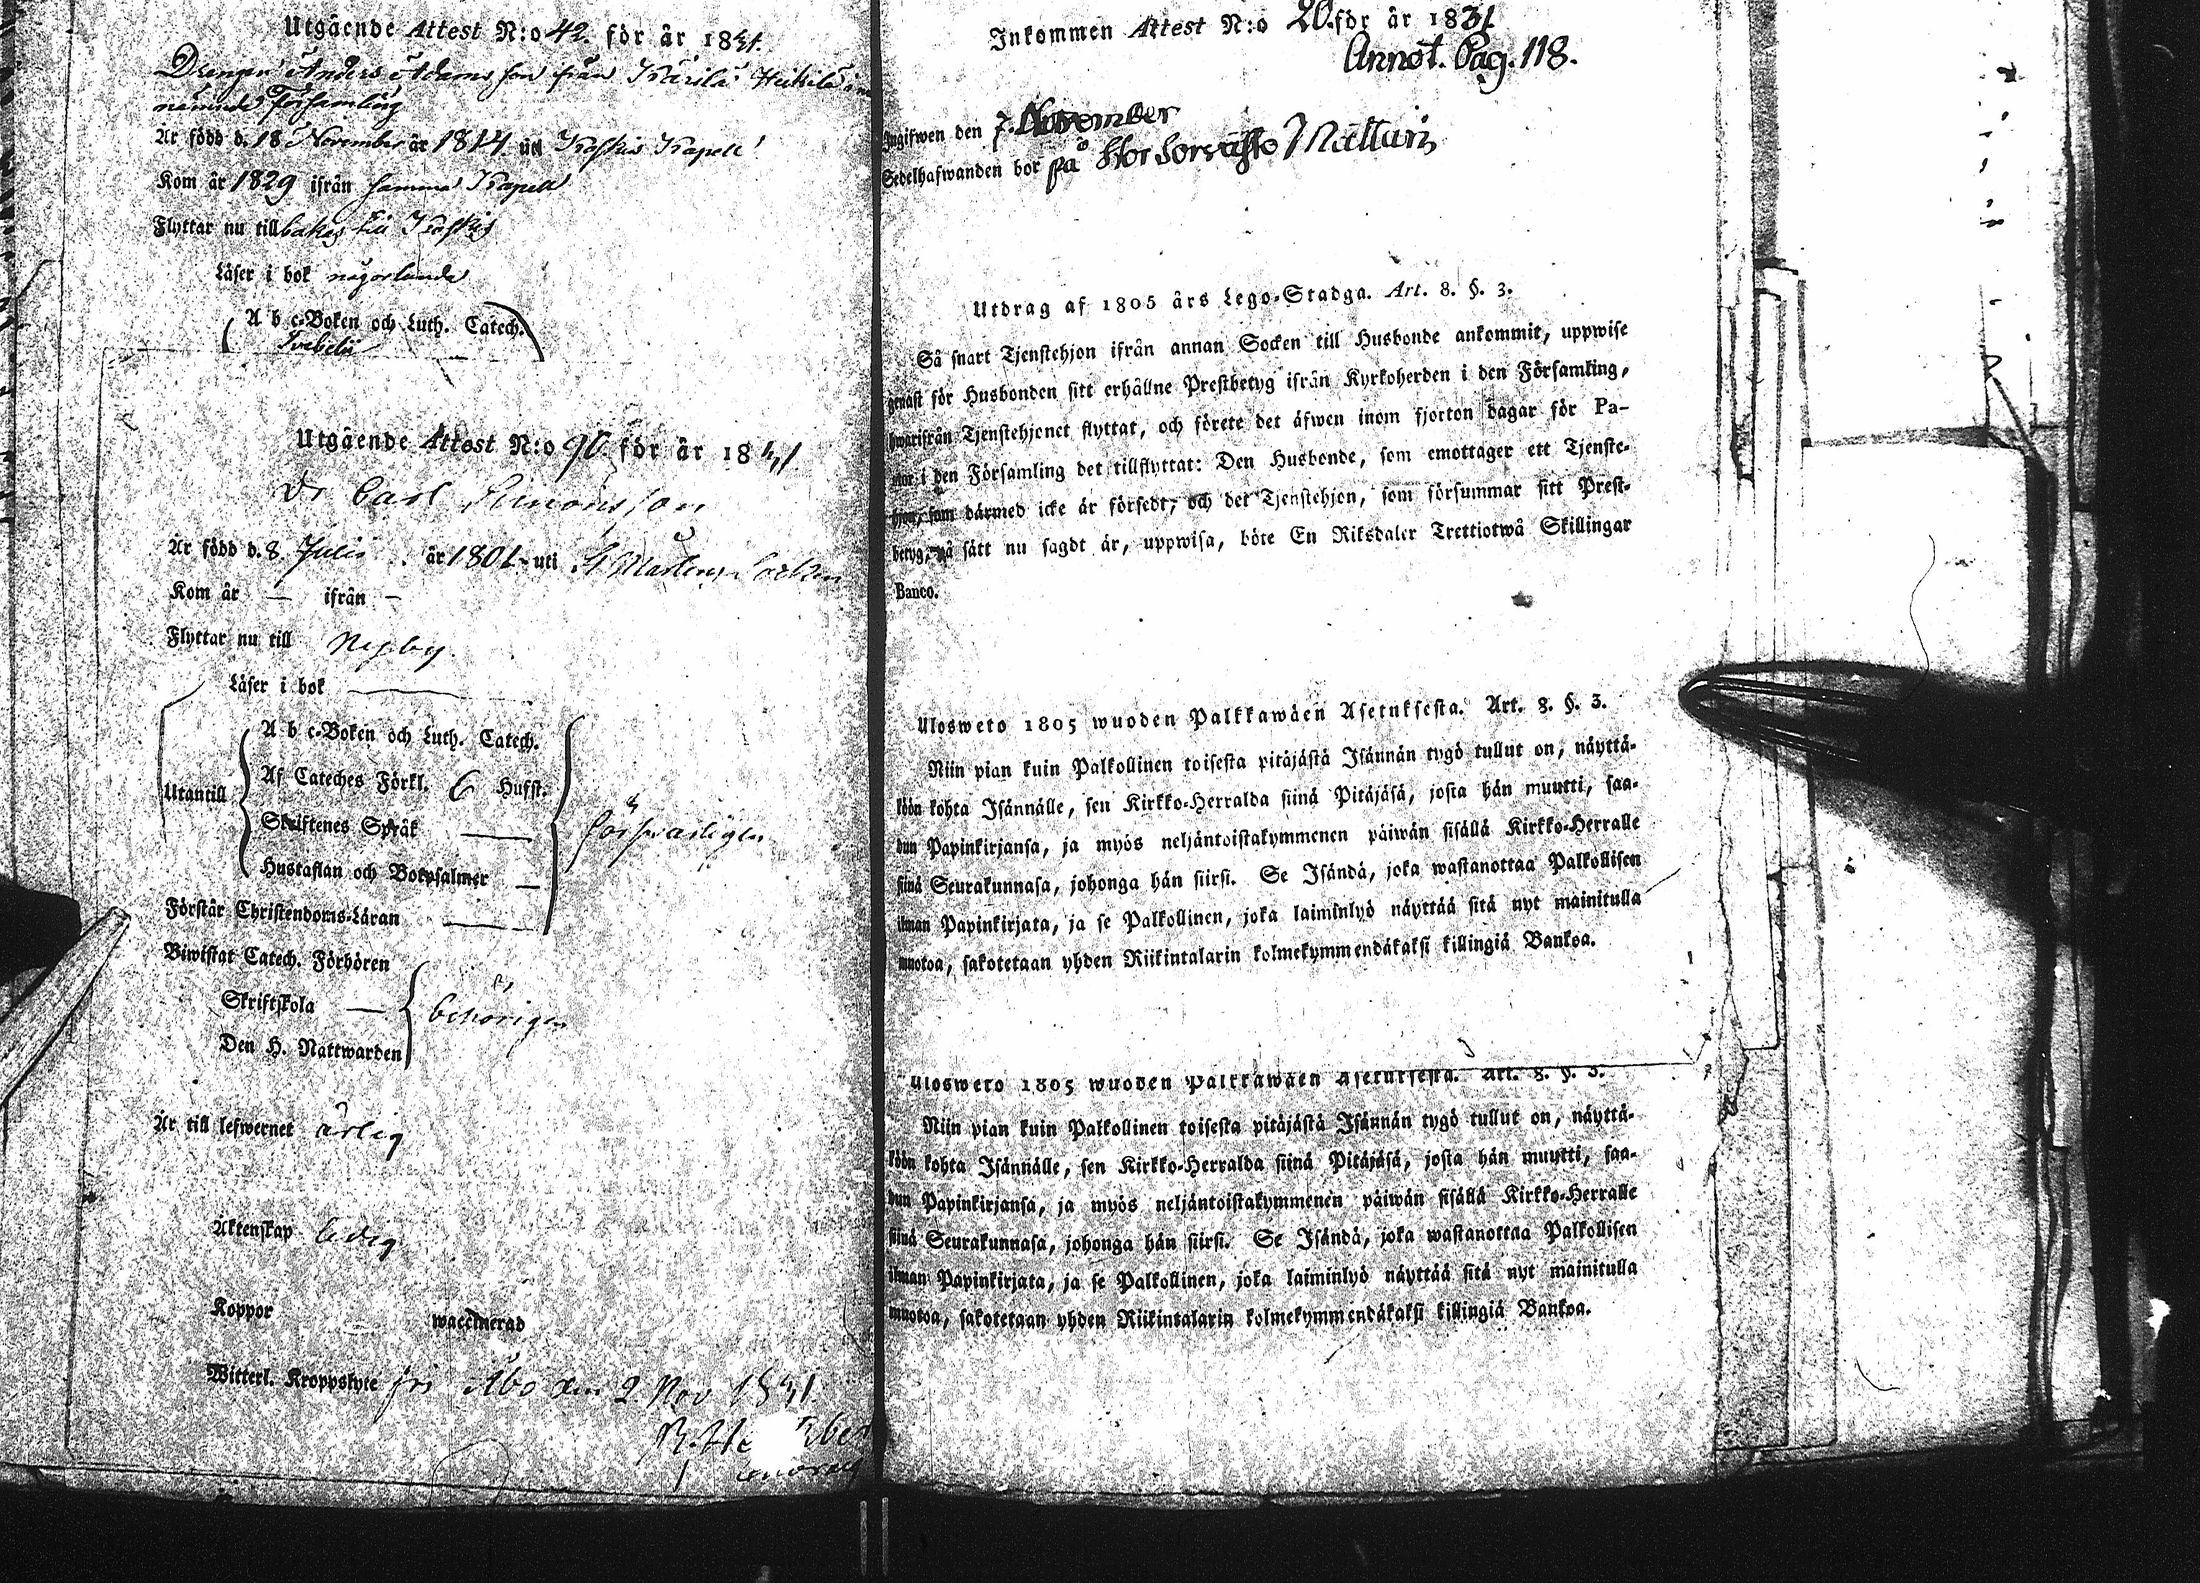 Utgående Attest N:o 42. för år 1831.
Drengen Anders Adamsson från Kärilä Heikilä i
nämnde Församling
Är född d. 18 November år 1814 uti Koskis Kapell
Kom år 1829 ifrån samma Kapell
Flyttar nu tillbakas till Koskis
Läser i bok någorlunda
A b c-Boken och Luth. Catech.
Utgående Attest N:o 90. för år 1831
Dr Carl Simonsson
Är född d. 8. Julii år 1801 uti St Mårtens Socken
Kom år — ifrån —
Flyttar nu till Nykby.
Läser i bok
A b c-Boken och Luth. Catech.
Utantill Af Cateches Förkl. 6 Hufst.
Skriftenes Språk — försvarligen
Hustaflan och Botpsalmer —
Förstår Christendoms-Läran —
Biwistat Catech. Förhören
Skriftskola — behörigen
Den H. Nattwarden
Är till lefwernet ärlig
Äktenskap ledig
Koppor waccinerad
Witterl. Kroppslyte fri Åbo den 2. Nov 1831.
Inkommen Attest N:o 20. för år 1831
Annot. Pag. 118.
Ingifwen den 7. November
Sedelhafwanden bor på Stor Sorvasto Mattari
Utdrag af 1805 års Lego-Stadga. Art. 8. §. 3.
Så snart Tjenstehjon ifrån annan Socken till Husbonde ankommit, uppwise
genast för Husbonden sitt erhållne Prestbetyg ifrån Kyrkoherden i den Församling,
hwarifrån Tjenstehjonet flyttat, och förete det äfwen inom fjorton dagar för Pa-
stor i den Församling det tillflyttat: Den Husbonde, som emottager ett Tjenste-
hjon, som därmed icke är försedt, och det Tjenstehjon, som försummar sitt Prest-
betyg, på sätt nu sagdt är, uppwisa, böte En Riksdaler Trettiotwå Skillingar
Banco.
Ulosweto 1805 wuoden Palkkawäen Asetuksesta. Art. 8. §. 3.
Niin pian kuin Palkollinen toisesta pitäjästä Isännän tygö tullut on, näyttä-
köön kohta Isännälle, sen Kirkko-Herralda siinä Pitäjäsä, josta hän muutti, saa-
dun Papinkirjansa, ja myös neljäntoistakymmenen päiwän sisällä Kirkko-Herralle
siinä Seurakunnasa, johonga hän siirsi. Se Isändä, joka wastanottaa Palkollisen
ilman Papinkirjata, ja se Palkollinen, joka laiminlyö näyttää sitä nyt mainitulla
muotoa, sakotetaan yhden Riikintalarin kolmekymmendäkaksi killingiä Bankoa.
Ulosweto 1805 wuoden Palkkawäen Asetuksesta. Art. 8. §. 3.
Niin pian kuin Palkollinen toisesta pitäjästä Isännän tygö tullut on, näyttä-
köön kohta Isännälle, sen Kirkko-Herralda siinä Pitäjäsä, josta hän muutti, saa-
dun Papinkirjansa, ja myös neljäntoistakymmenen päiwän sisällä Kirkko-Herralle
siinä Seurakunnasa, johonga hän siirsi. Se Isändä, joka wastanottaa Palkollisen
ilman Papinkirjata, ja se Palkollinen, joka laiminlyö näyttää sitä nyt mainitulla
muotoa, sakotetaan yhden Riikintalarin kolmekymmendäkaksi killingiä Bankoa.